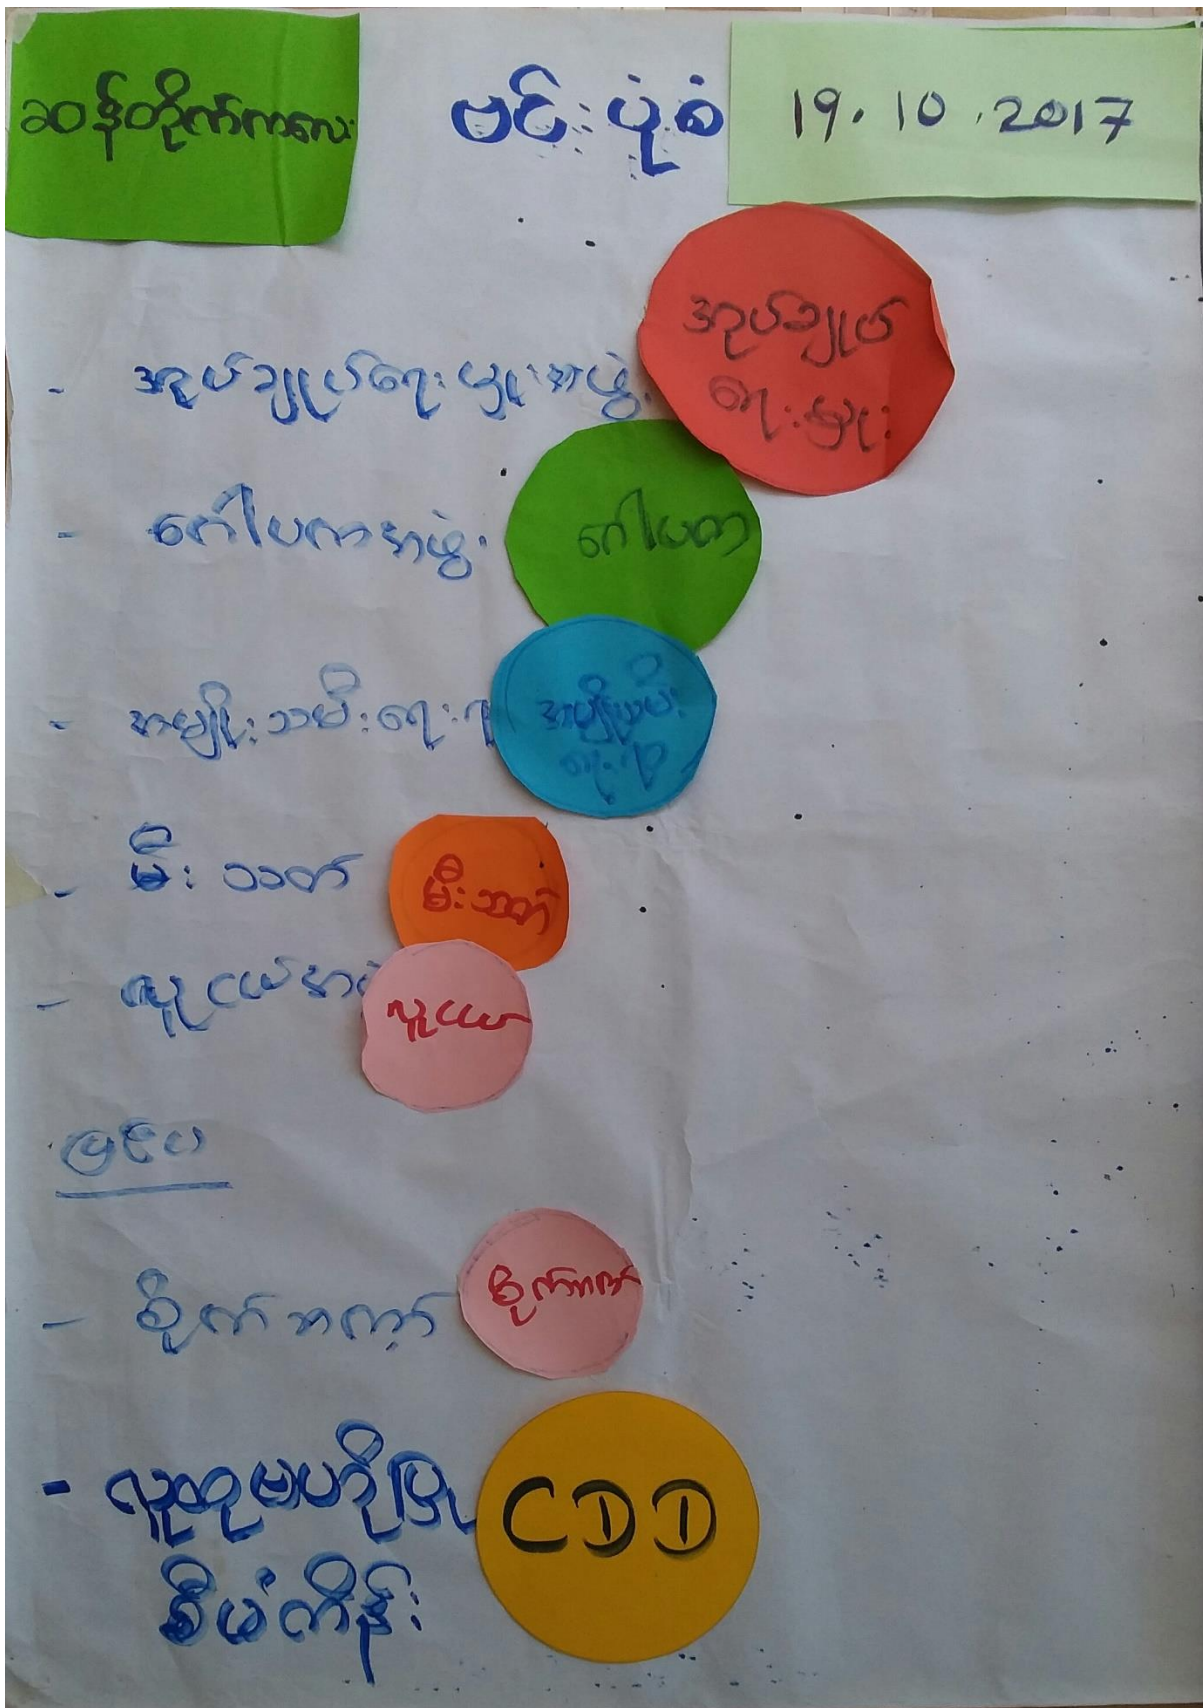 ဆန်တိုက်ကလေး
ဗင်းပုံစံ
19.10.2017
- အုပ်ချုပ်ရေးမှူးအဖွဲ့
အုပ်ချုပ်
ရေးမှူး
- ဂေါပကအဖွဲ့
ဂေါပက
- အမျိုးသမီးရေးရာ
အမျိုးသမီး
ရေးရာ
- မီးသတ်
မီးသတ်
- လူငယ်အဖွဲ့
လူငယ်
ပြင်ပ
- စိုက်
- လူထုဗဟိုပြု
စီမံကိန်း
CDD